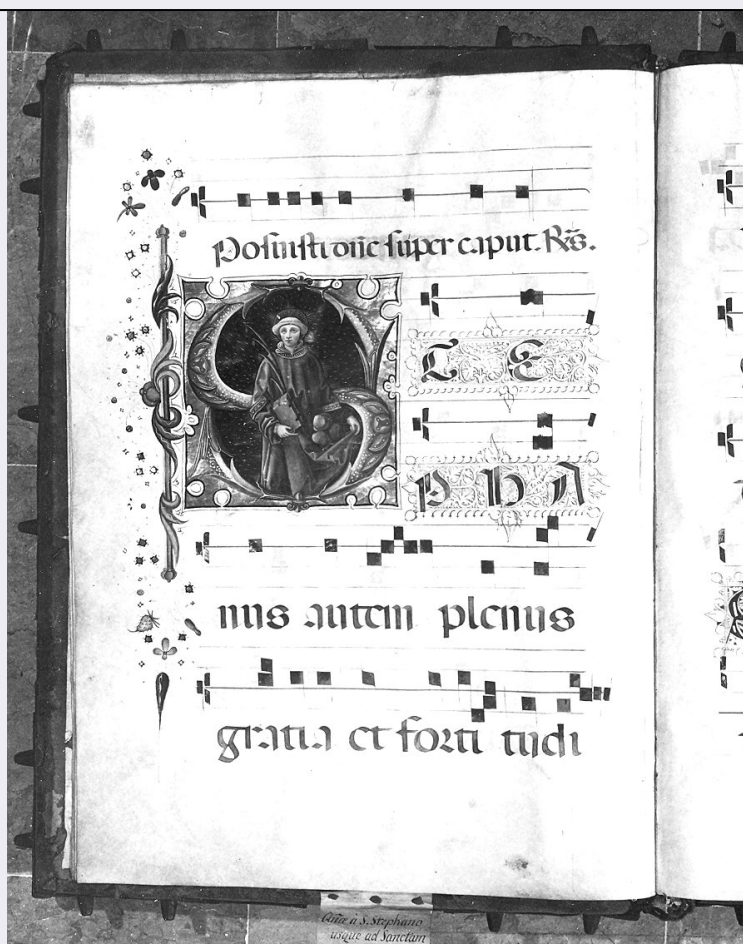 Posuisti dñe super caput. Rs̃.
S TE
PHA
nus autem plenus
gratia et forti tudi
Oñia a S. Stephano
usque ad Sanctam